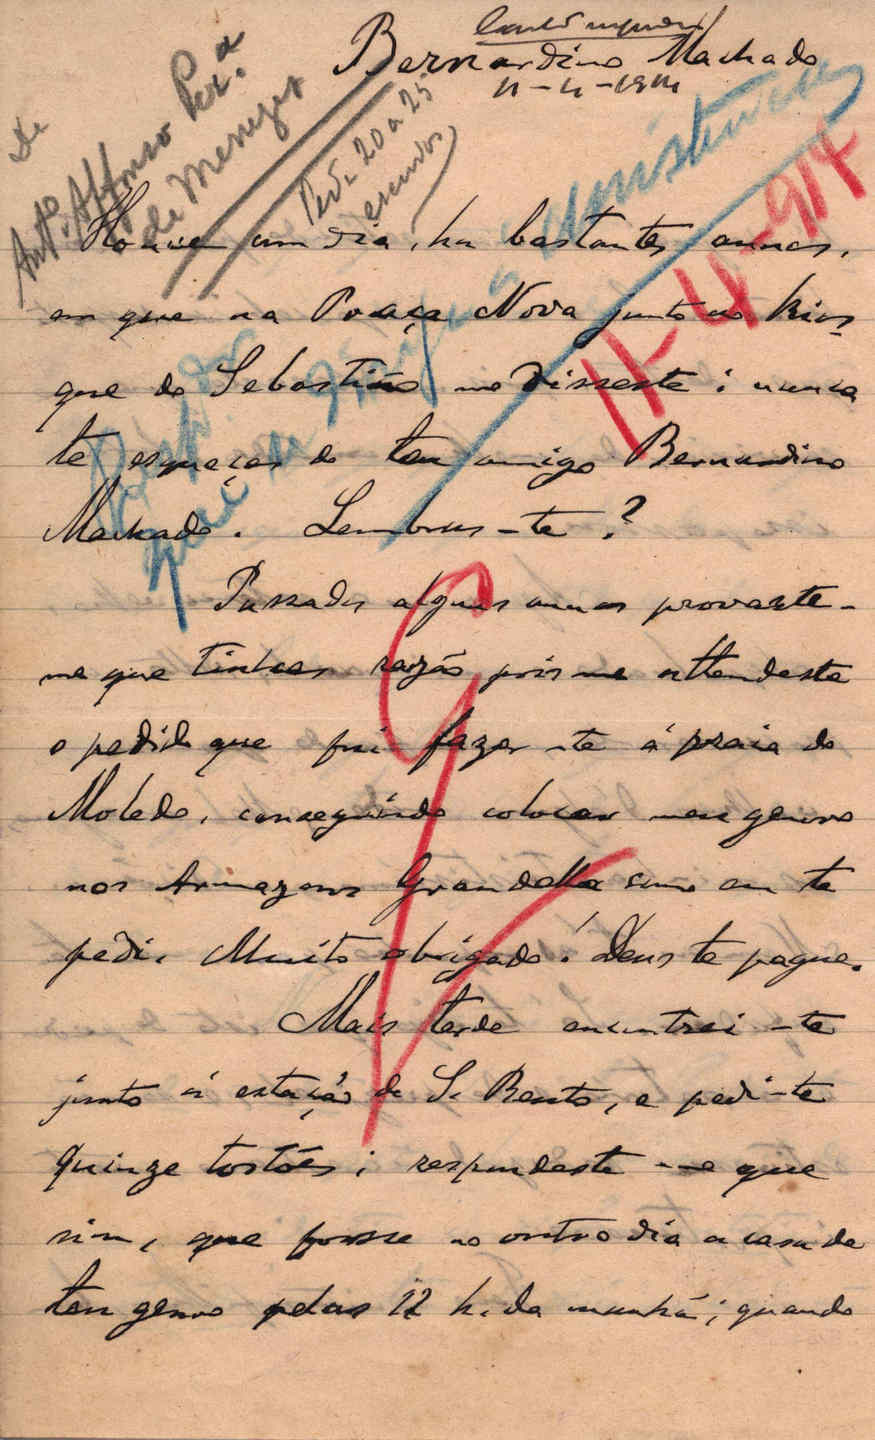 Bernardino Machado
11-4-1914
De
Antº. Affonso Per.ª
de Menezes
Pede 20 a 25
escudos
11-4-914
Houve um dia, ha bastantes annos,
em que na Praça Nova junto ao kios-
que do Sebastião me disseste: nunca
te esqueças do teu amigo Bernardino
Machado. Lembras-te?
Passados alguns annos provaste-
me que tinhas razão pois me attendeste
o pedido que fui fazer-te á praia de
Moledo, conseguindo colocar meu genro
nos Armazens Grandella como eu te
pedi. Muito obrigado! Deus te pague.
Mais tarde encontrei-te
junto á estação de S. Bento, e pedi-te
quinze tostões; respondeste-me que
sim, que fosse no outro dia a casa de
teu genro pelas 12 h. da manhã; quando